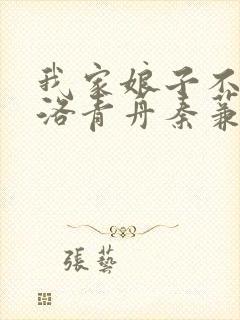 我家娘子不
洛青丹秦蒹
張藝